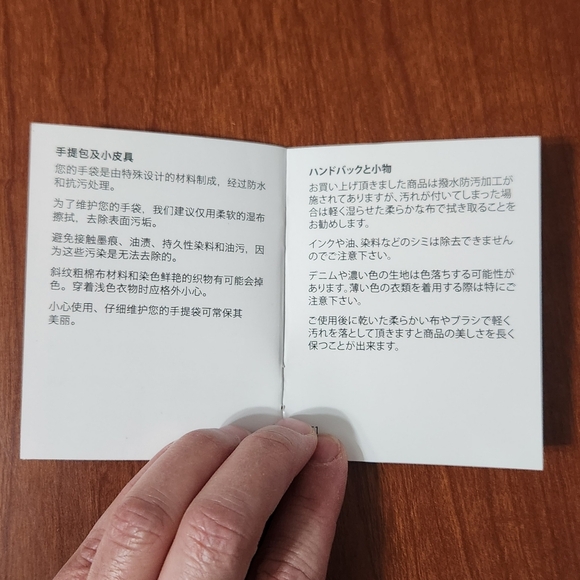 手提包及小皮具
您的手袋是由特殊设计的材料制成，经过防水
和抗污处理。
为了维护您的手袋，我们建议仅用柔软的湿布
擦拭，去除表面污垢。
避免接触墨痕、油渍、持久性染料和油污，因
为这些污染是无法去除的。
斜纹粗棉布材料和染色鲜艳的织物有可能会掉
色。穿着浅色衣物时应格外小心。
小心使用、仔细维护您的手提袋可常保其
美丽。
ハンドバックと小物
お買い上げ頂きました商品は撥水防汚加工が
施されてありますが、汚れが付いてしまった場
合は軽く湿らせた柔らかな布で拭き取ることを
お勧めします。
インクや油、染料などのシミは除去できません
のでご注意下さい。
デニムや濃い色の生地は色落ちする可能性が
あります。薄い色の衣類を着用する際は特にご
注意下さい。
ご使用後に乾いた柔らかい布やブラシで軽く
汚れを落として頂きますと商品の美しさを長く
保つことが出来ます。